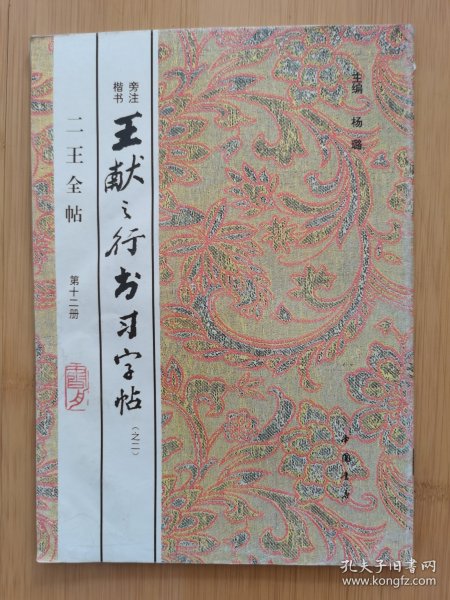 主编 杨璐
旁注
楷书
王献之行书习字帖
(之二)
二王全帖
第十二册
中国书店
孔夫子旧书网
www.kongfz.com